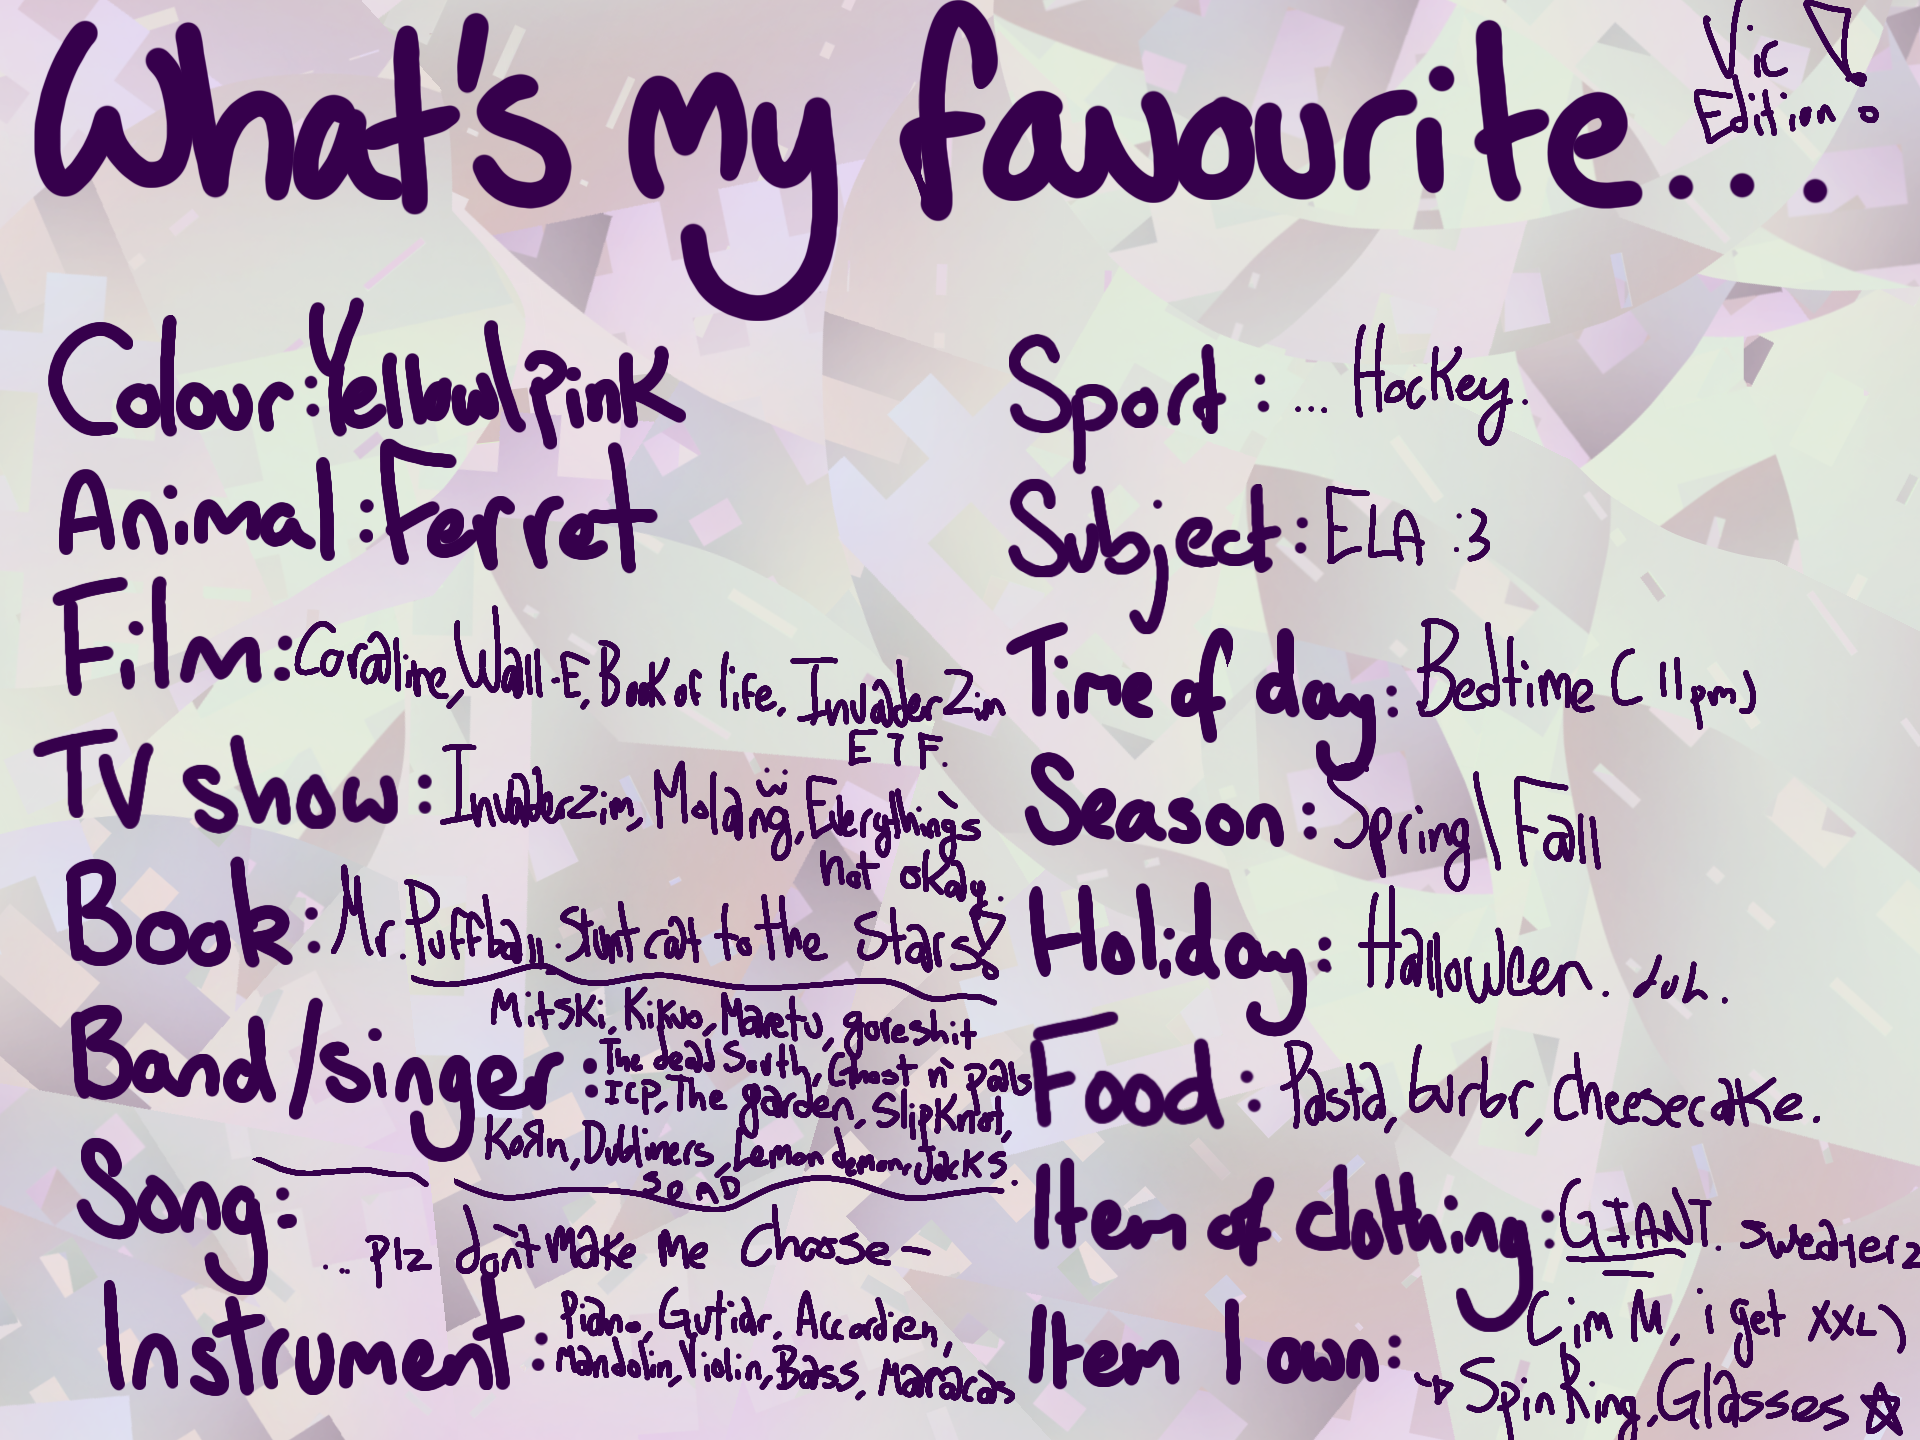 What's my favourite...
Vic
Edition!
Colour: Yellow\Pink
Animal: Ferret
Film: Coraline, Wall-E, Book of life, Invader Zim
ETF.
TV show: Invader zim, Molang, Everything's
not okay.
Book: Mr. Puffball. Stunt cat to the Stars!
Band/singer:
Mitski, Kikuo, Maretu, goreshit
The dead South, Ghost n' pals
ICP, The garden, SlipKnot,
KoЯn, Dubliners, Lemon demon, Jacks.
Song:
... plz don't make me choose-
Instrument: Piano, Gutiar, Accordien,
Mandolin, Violin, Bass, Maracas
Sport: ... Hockey.
Subject: ELA :3
Time of day: Bedtime (11pm)
Season: Spring\Fall
Holiday: Halloween. duh.
Food: Pasta, burbr, cheesecake.
Item of clothing: GIANT. sweaterz
(im M, i get XXL)
Item I own:
Spin Ring, Glasses